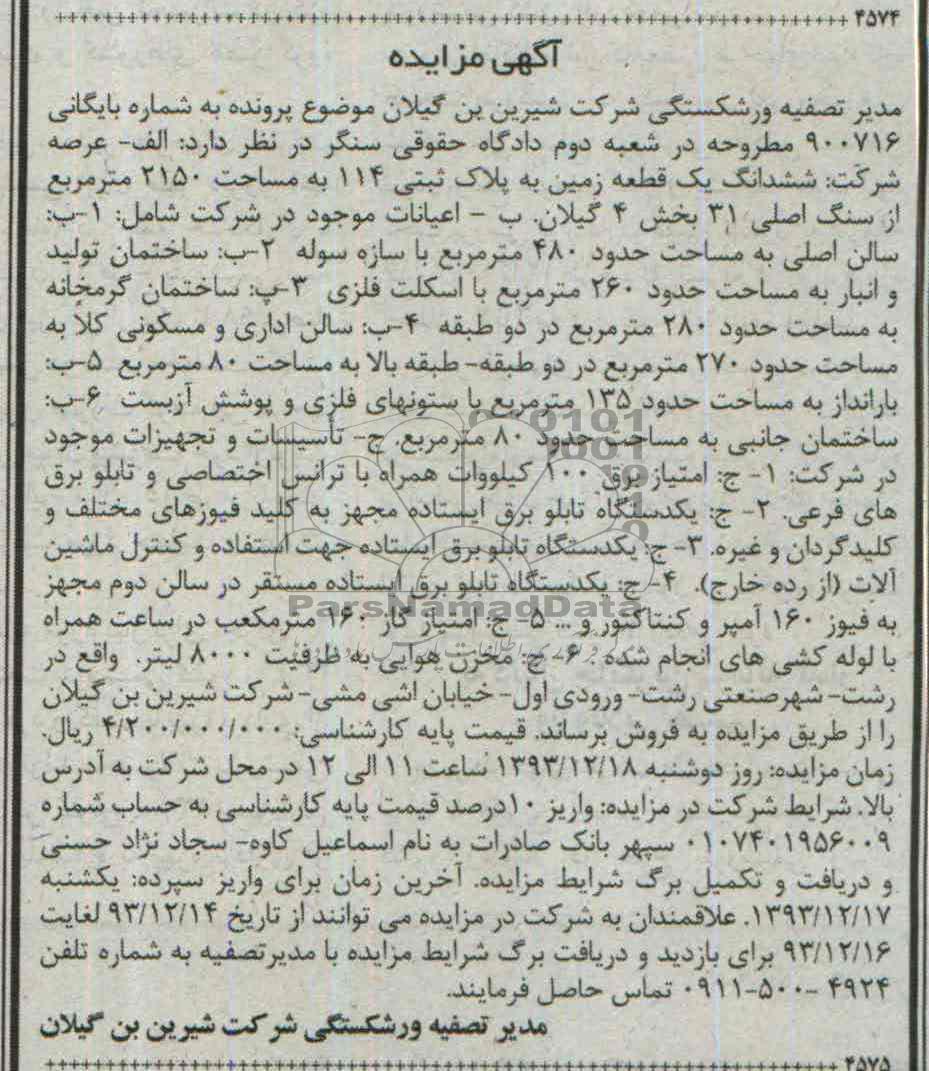 ۴۵۷۴ ++++++++++++++++++++++++++++++++++++++++++++++++
آگهی مزایده
مدیر تصفیه ورشکستگی شرکت شیرین بن گیلان موضوع پرونده به شماره بایگانی
۹۰۰۷۱۶ مطروحه در شعبه دوم دادگاه حقوقی سنگر در نظر دارد: الف- عرصه
شرکت: ششدانگ یک قطعه زمین به پلاک ثبتی ۱۱۴ به مساحت ۲۱۵۰ مترمربع
از سنگ اصلی ۳۱ بخش ۴ گیلان. ب - اعیانات موجود در شرکت شامل: ۱-ب:
سالن اصلی به مساحت حدود ۴۸۰ مترمربع با سازه سوله ۲-ب: ساختمان تولید
و انبار به مساحت حدود ۲۶۰ مترمربع با اسکلت فلزی ۳-ب: ساختمان گرمخانه
به مساحت حدود ۲۸۰ مترمربع در دو طبقه ۴-ب: سالن اداری و مسکونی کلا به
مساحت حدود ۲۷۰ مترمربع در دو طبقه- طبقه بالا به مساحت ۸۰ مترمربع ۵-ب:
بارانداز به مساحت حدود ۱۳۵ مترمربع با ستونهای فلزی و پوشش آزبست ۶-ب:
ساختمان جانبی به مساحت حدود ۸۰ مترمربع. ج- تأسیسات و تجهیزات موجود
در شرکت: ۱- ج: امتیاز برق ۱۰۰ کیلووات همراه با ترانس اختصاصی و تابلو برق
های فرعی. ۲- ج: یکدستگاه تابلو برق ایستاده مجهز به کلید فیوزهای مختلف و
کلیدگردان و غیره. ۳- ج: یکدستگاه تابلو برق ایستاده جهت استفاده و کنترل ماشین
آلات (از رده خارج). ۴- ج: یکدستگاه تابلو برق ایستاده مستقر در سالن دوم مجهز
به فیوز ۱۶۰ آمپر و کنتاکتور و ... ۵- ج: امتیاز گاز ۱۶۰ مترمکعب در ساعت همراه
با لوله کشی های انجام شده. ۶- ج: مخزن هوایی به ظرفیت ۸۰۰۰ لیتر. واقع در
رشت- شهرصنعتی رشت- ورودی اول- خیابان اشی مشی- شرکت شیرین بن گیلان
را از طریق مزایده به فروش برساند. قیمت پایه کارشناسی: ۴/۲۰۰/۰۰۰/۰۰۰ ریال.
زمان مزایده: روز دوشنبه ۱۳۹۳/۱۲/۱۸ ساعت ۱۱ الی ۱۲ در محل شرکت به آدرس
بالا. شرایط شرکت در مزایده: واریز ۱۰درصد قیمت پایه کارشناسی به حساب شماره
۰۱۰۷۴۰۱۹۵۶۰۰۹ سپهر بانک صادرات به نام اسماعیل کاوه- سجاد نژاد حسنی
و دریافت و تکمیل برگ شرایط مزایده. آخرین زمان برای واریز سپرده: یکشنبه
۱۳۹۳/۱۲/۱۷. علاقمندان به شرکت در مزایده می توانند از تاریخ ۹۳/۱۲/۱۴ لغایت
۹۳/۱۲/۱۶ برای بازدید و دریافت برگ شرایط مزایده با مدیرتصفیه به شماره تلفن
۴۹۲۴ -۵۰۰-۰۹۱۱ تماس حاصل فرمایند.
مدیر تصفیه ورشکستگی شرکت شیرین بن گیلان
۴۵۷۵ ++++++++++++++++++++++++++++++++++++++++++++++++
ParsNamadData